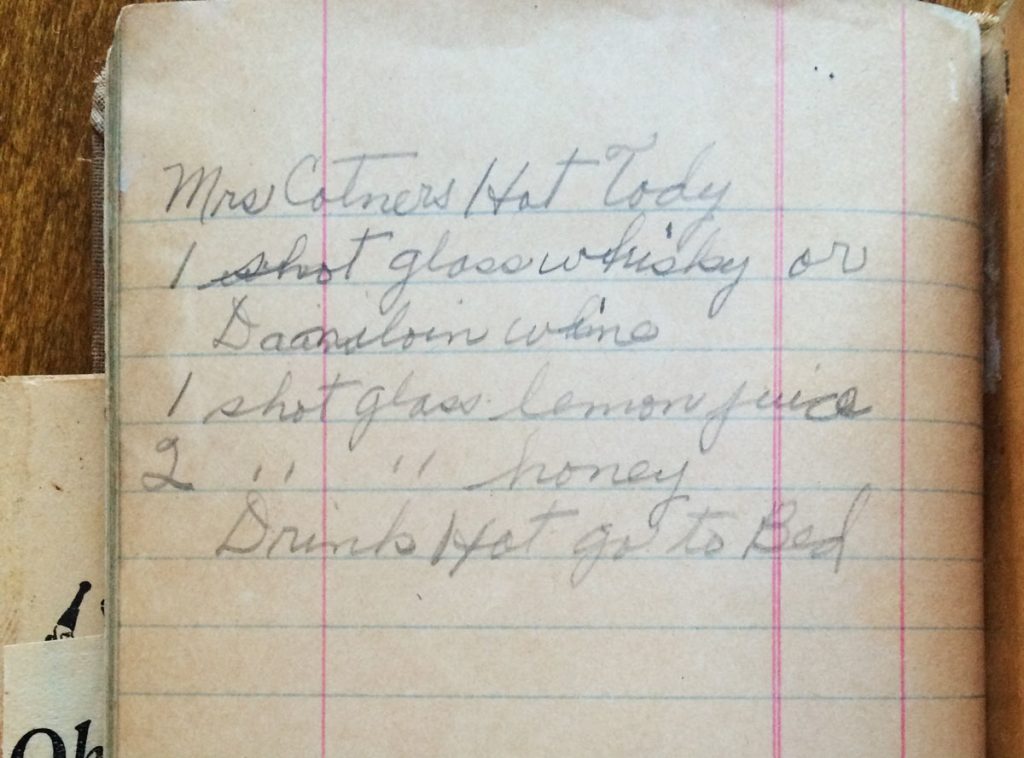 Mrs Cotners Hot Tody
1 shot glass whisky or
Daandloin whine
1 shot glass lemon juice
2 " " honey
Drink Hot go to Bed
Oh